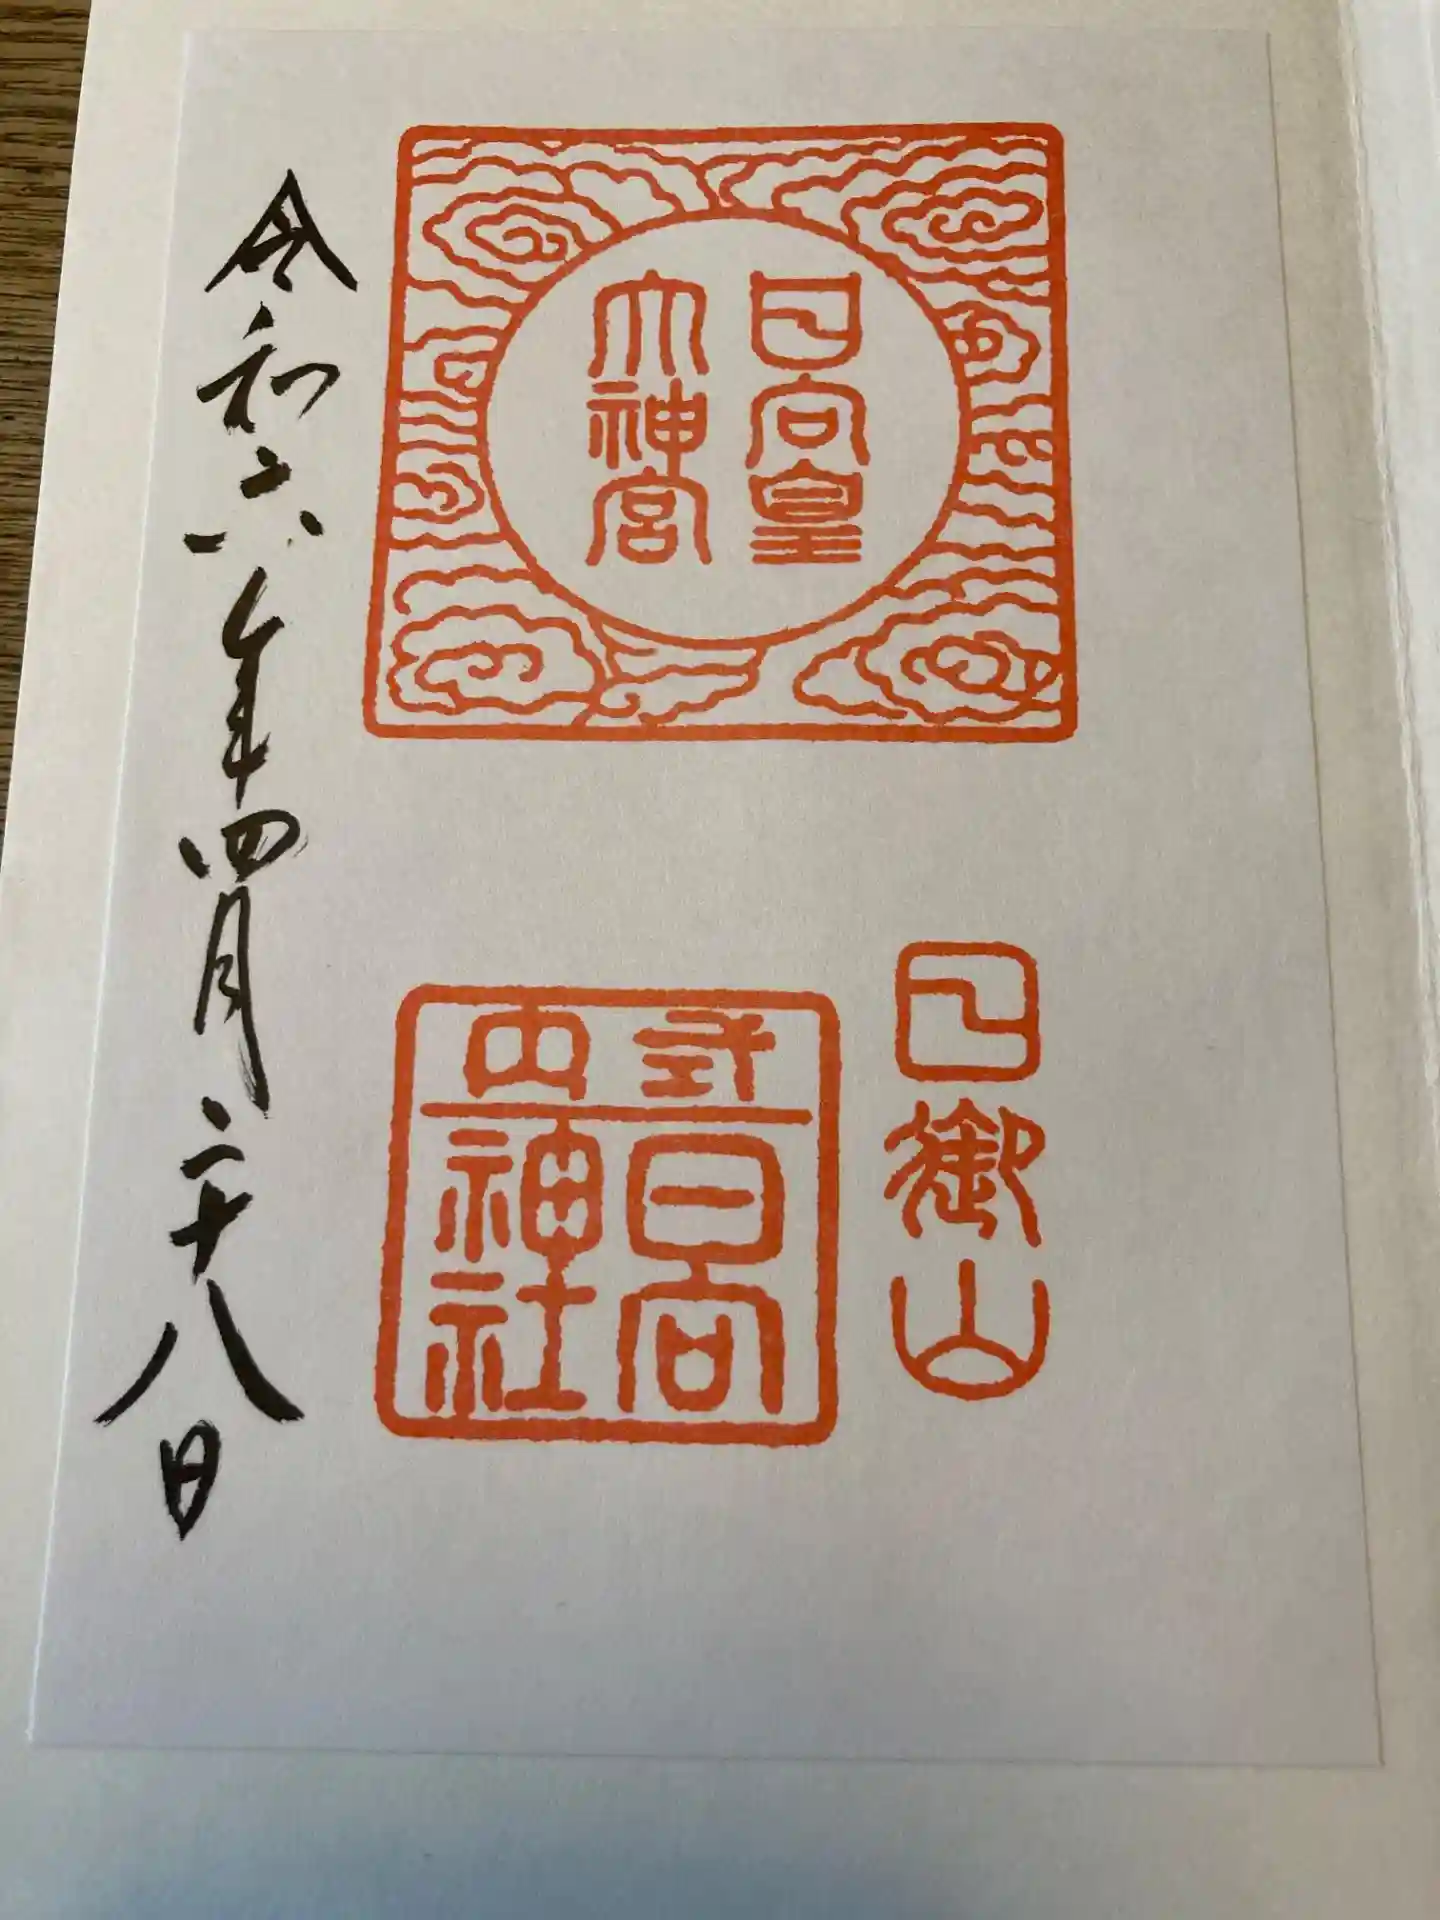 日向皇
大神宮
日御山
式内
日向
神社
令和六年四月二十八日